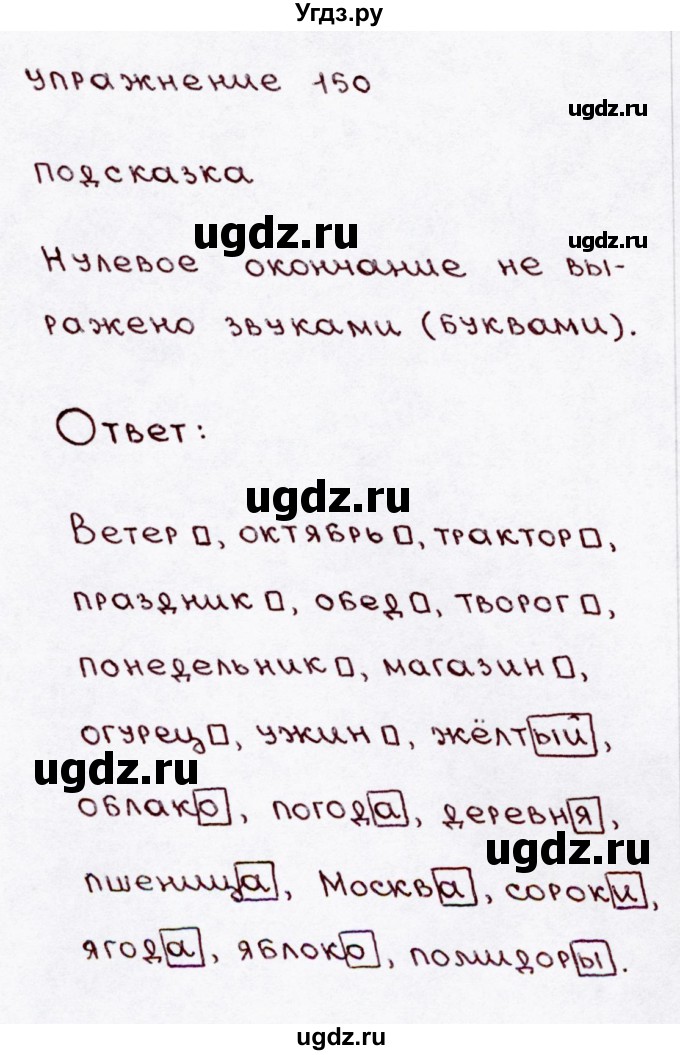 Угдз.ру
упражнение 150
ugdz.ru
подсказка
ugdz.ru
ugdz.ru
Нулевое окончание не вы-
ражено звуками (буквами).
Ответ:
ugdz.ru
Ветер▯, октябрь▯, трактор▯,
праздник▯, обед▯, творог▯,
понедельник▯, магазин▯,
огурец▯, ужин▯, жёлтый,
ugdz.ru
облако, погода, деревня,
ugdz.ru
пшеница, Москва, сороки,
ягода, яблоко, помидоры.
ugdz.ru